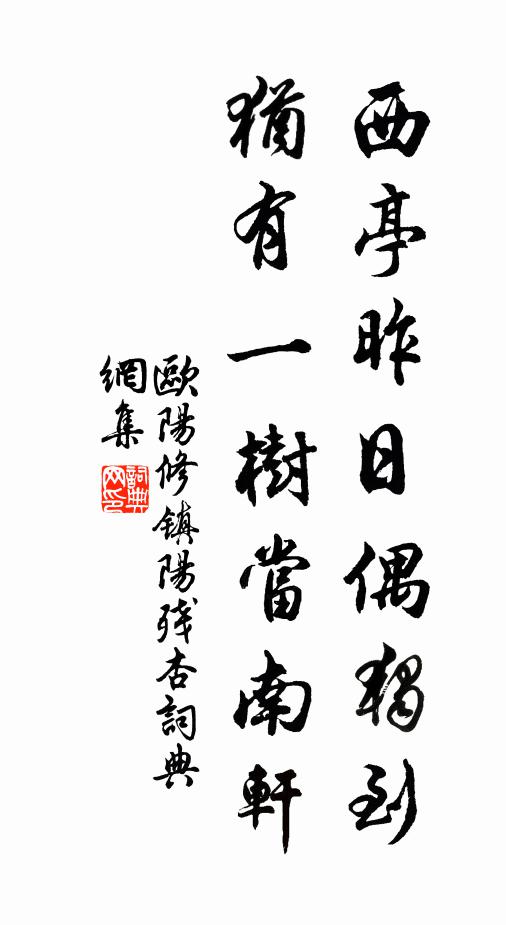 西亭昨日偶獨到
猶有一樹當南軒
歐陽修鎮陽殘杏詞典
網集
詞典網印